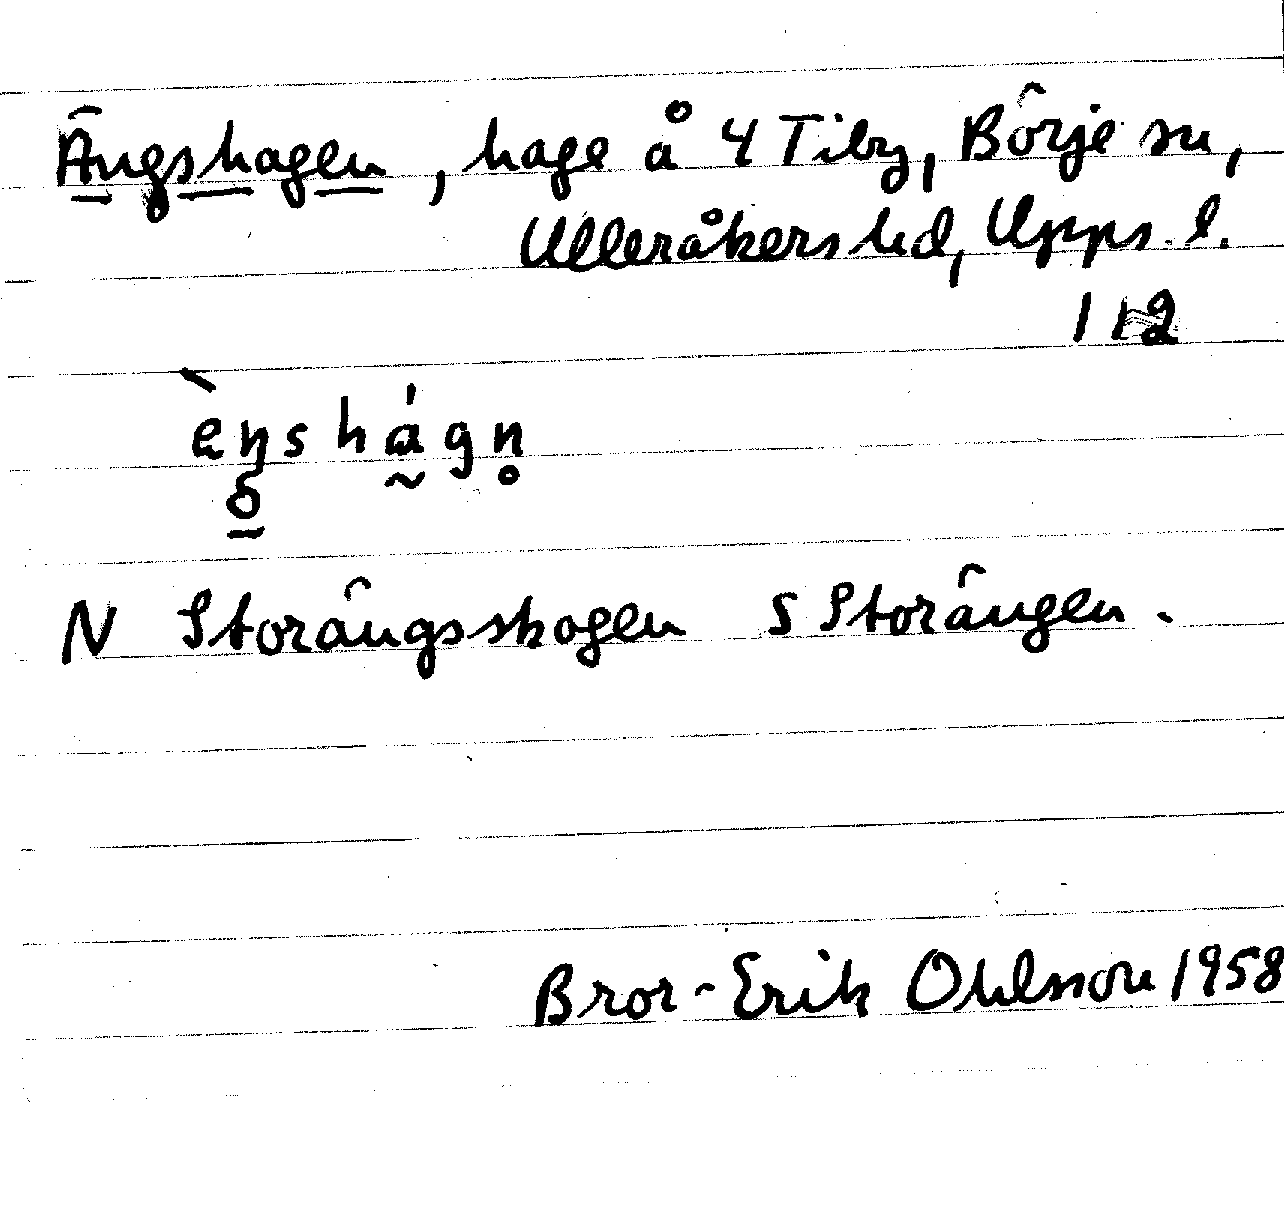 Ängshagen, hage å 4 Tiby, Börje sn,
Ulleråkers hd, Upps. l.
112
N Storängsskogen S Storängen.
Bror-Erik Ohlsson 1958